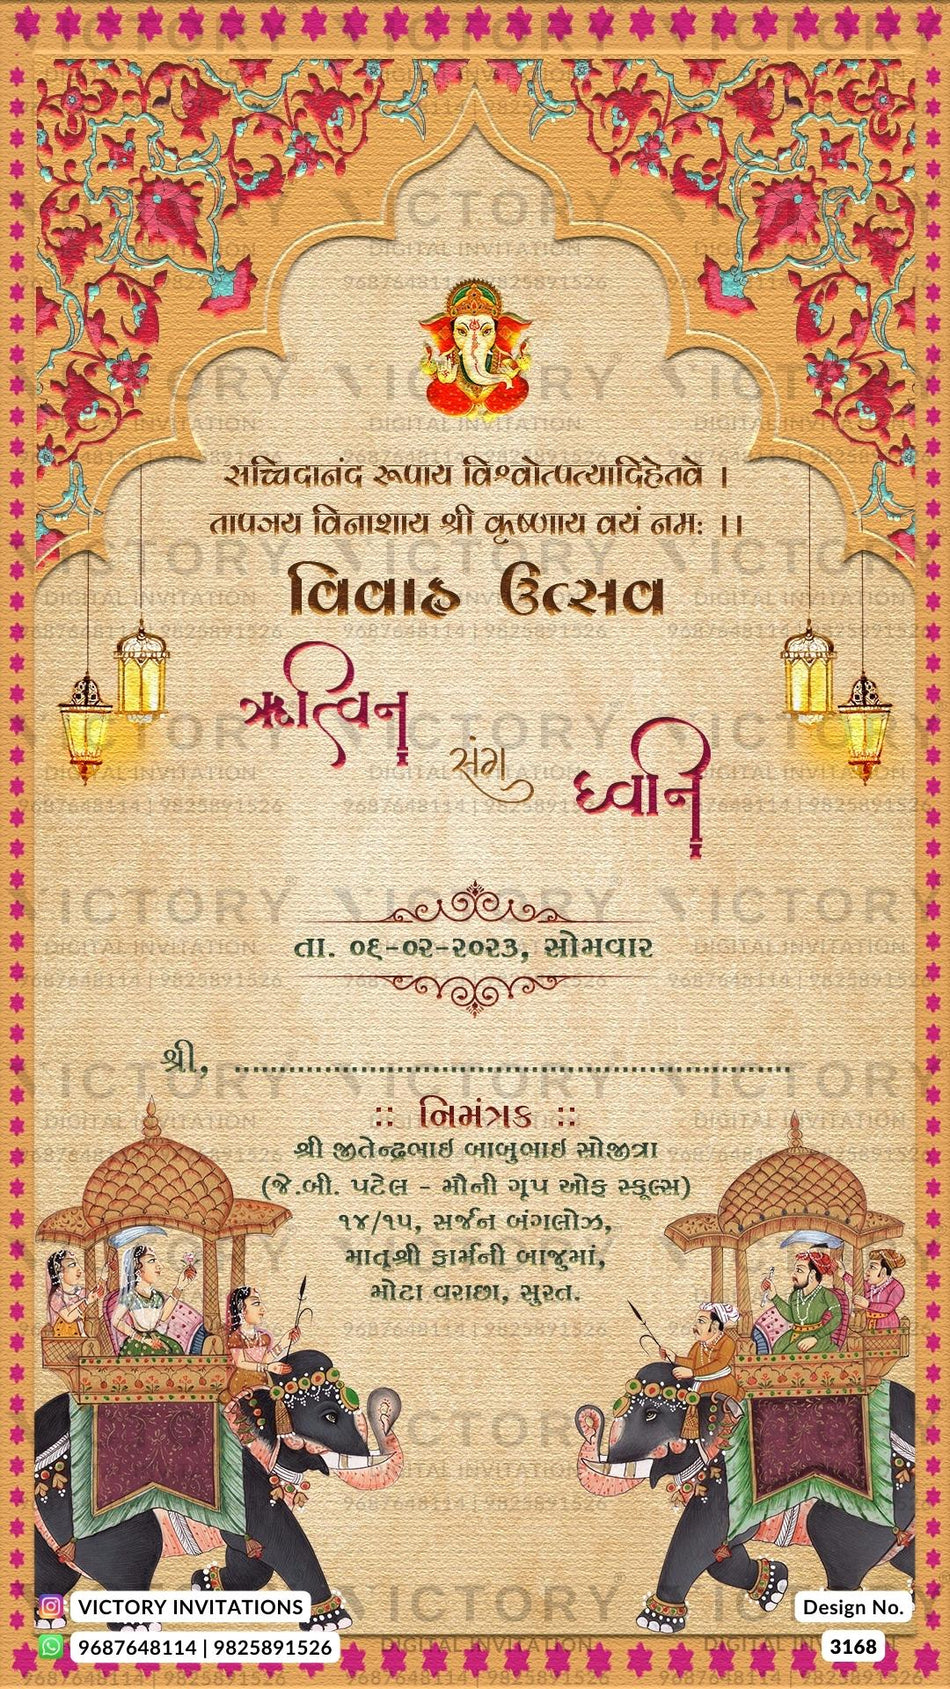 સચ્ચિદાનંદ રૂપાય વિશ્વોત્પત્યાદિહેતવે ।
તાપત્રય વિનાશાય શ્રી કૃષ્ણાય વયં નમઃ ।।
વિવાહ ઉત્સવ
ઋત્વિન્
સંગ
ધ્વનિ
તા. ૦૬-૦૨-૨૦૨૩, સોમવાર
શ્રી, ......................................................................
:: નિમંત્રક ::
શ્રી જીતેન્દ્રભાઇ બાબુભાઇ સોજીત્રા
(જે.બી. પટેલ - મૌની ગૃપ ઓફ સ્કૂલ્સ)
૧૪/૧૫, સર્જન બંગલોઝ,
માતૃશ્રી ફાર્મની બાજુમાં,
મોટા વરાછા, સુરત.
VICTORY INVITATIONS
9687648114 | 9825891526
Design No.
3168
VICTORY
DIGITAL INVITATION
9687648114 | 9825891526